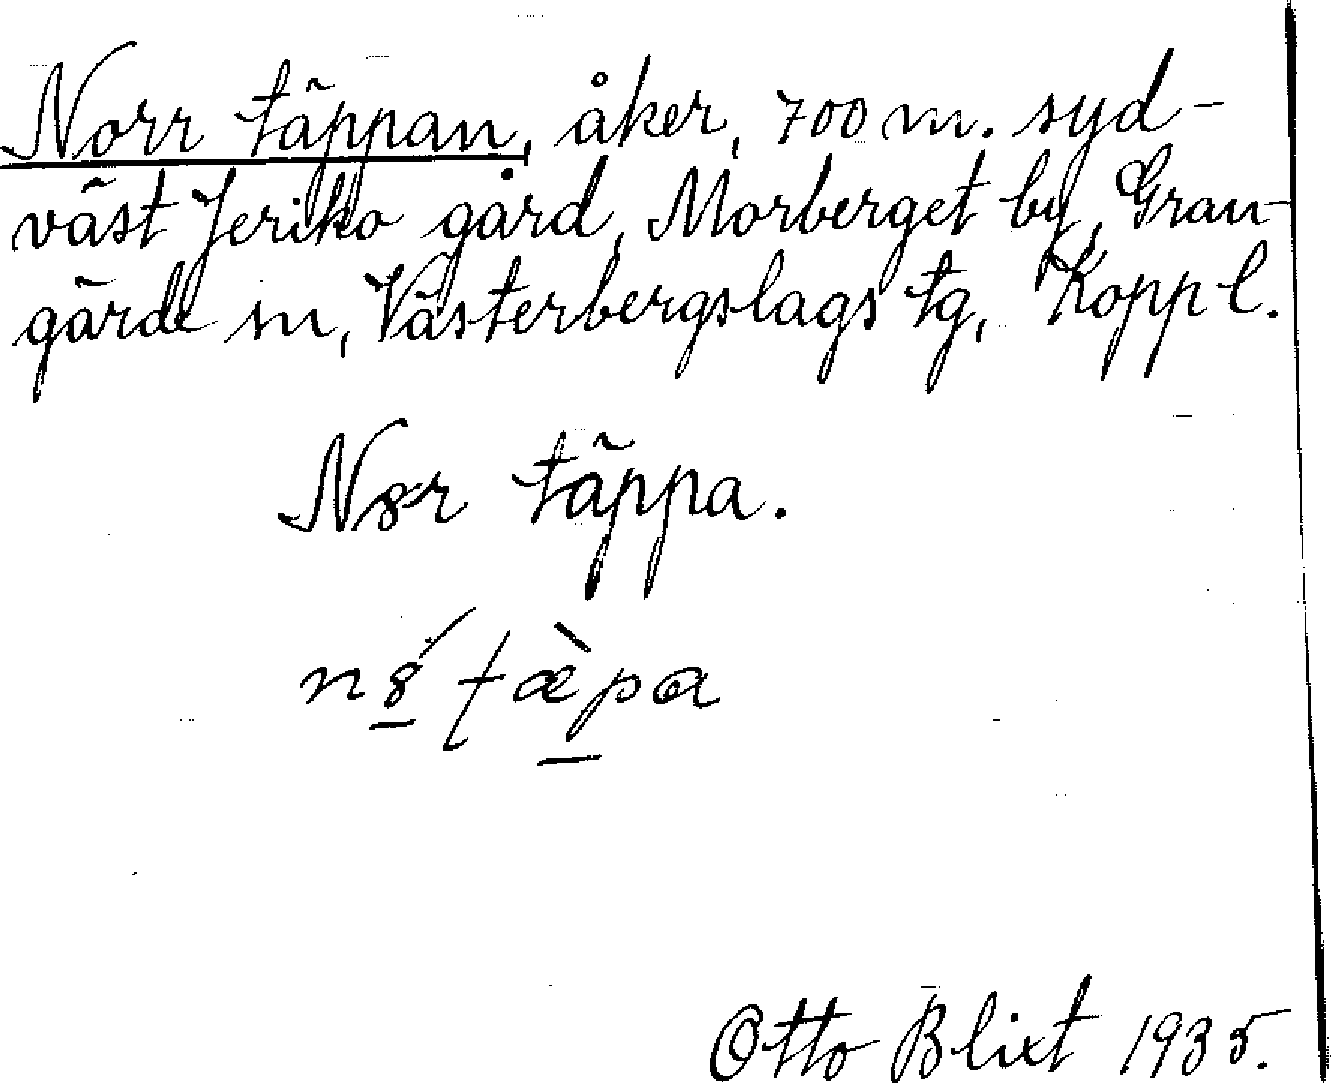 Norr täppan, åker, 700 m. syd-
väst Jeriko gård, Morberget by, Gran-
gärde sn, Västerbergslags tg, Kopp l.
Nor täppa.
Otto Blixt 1935.